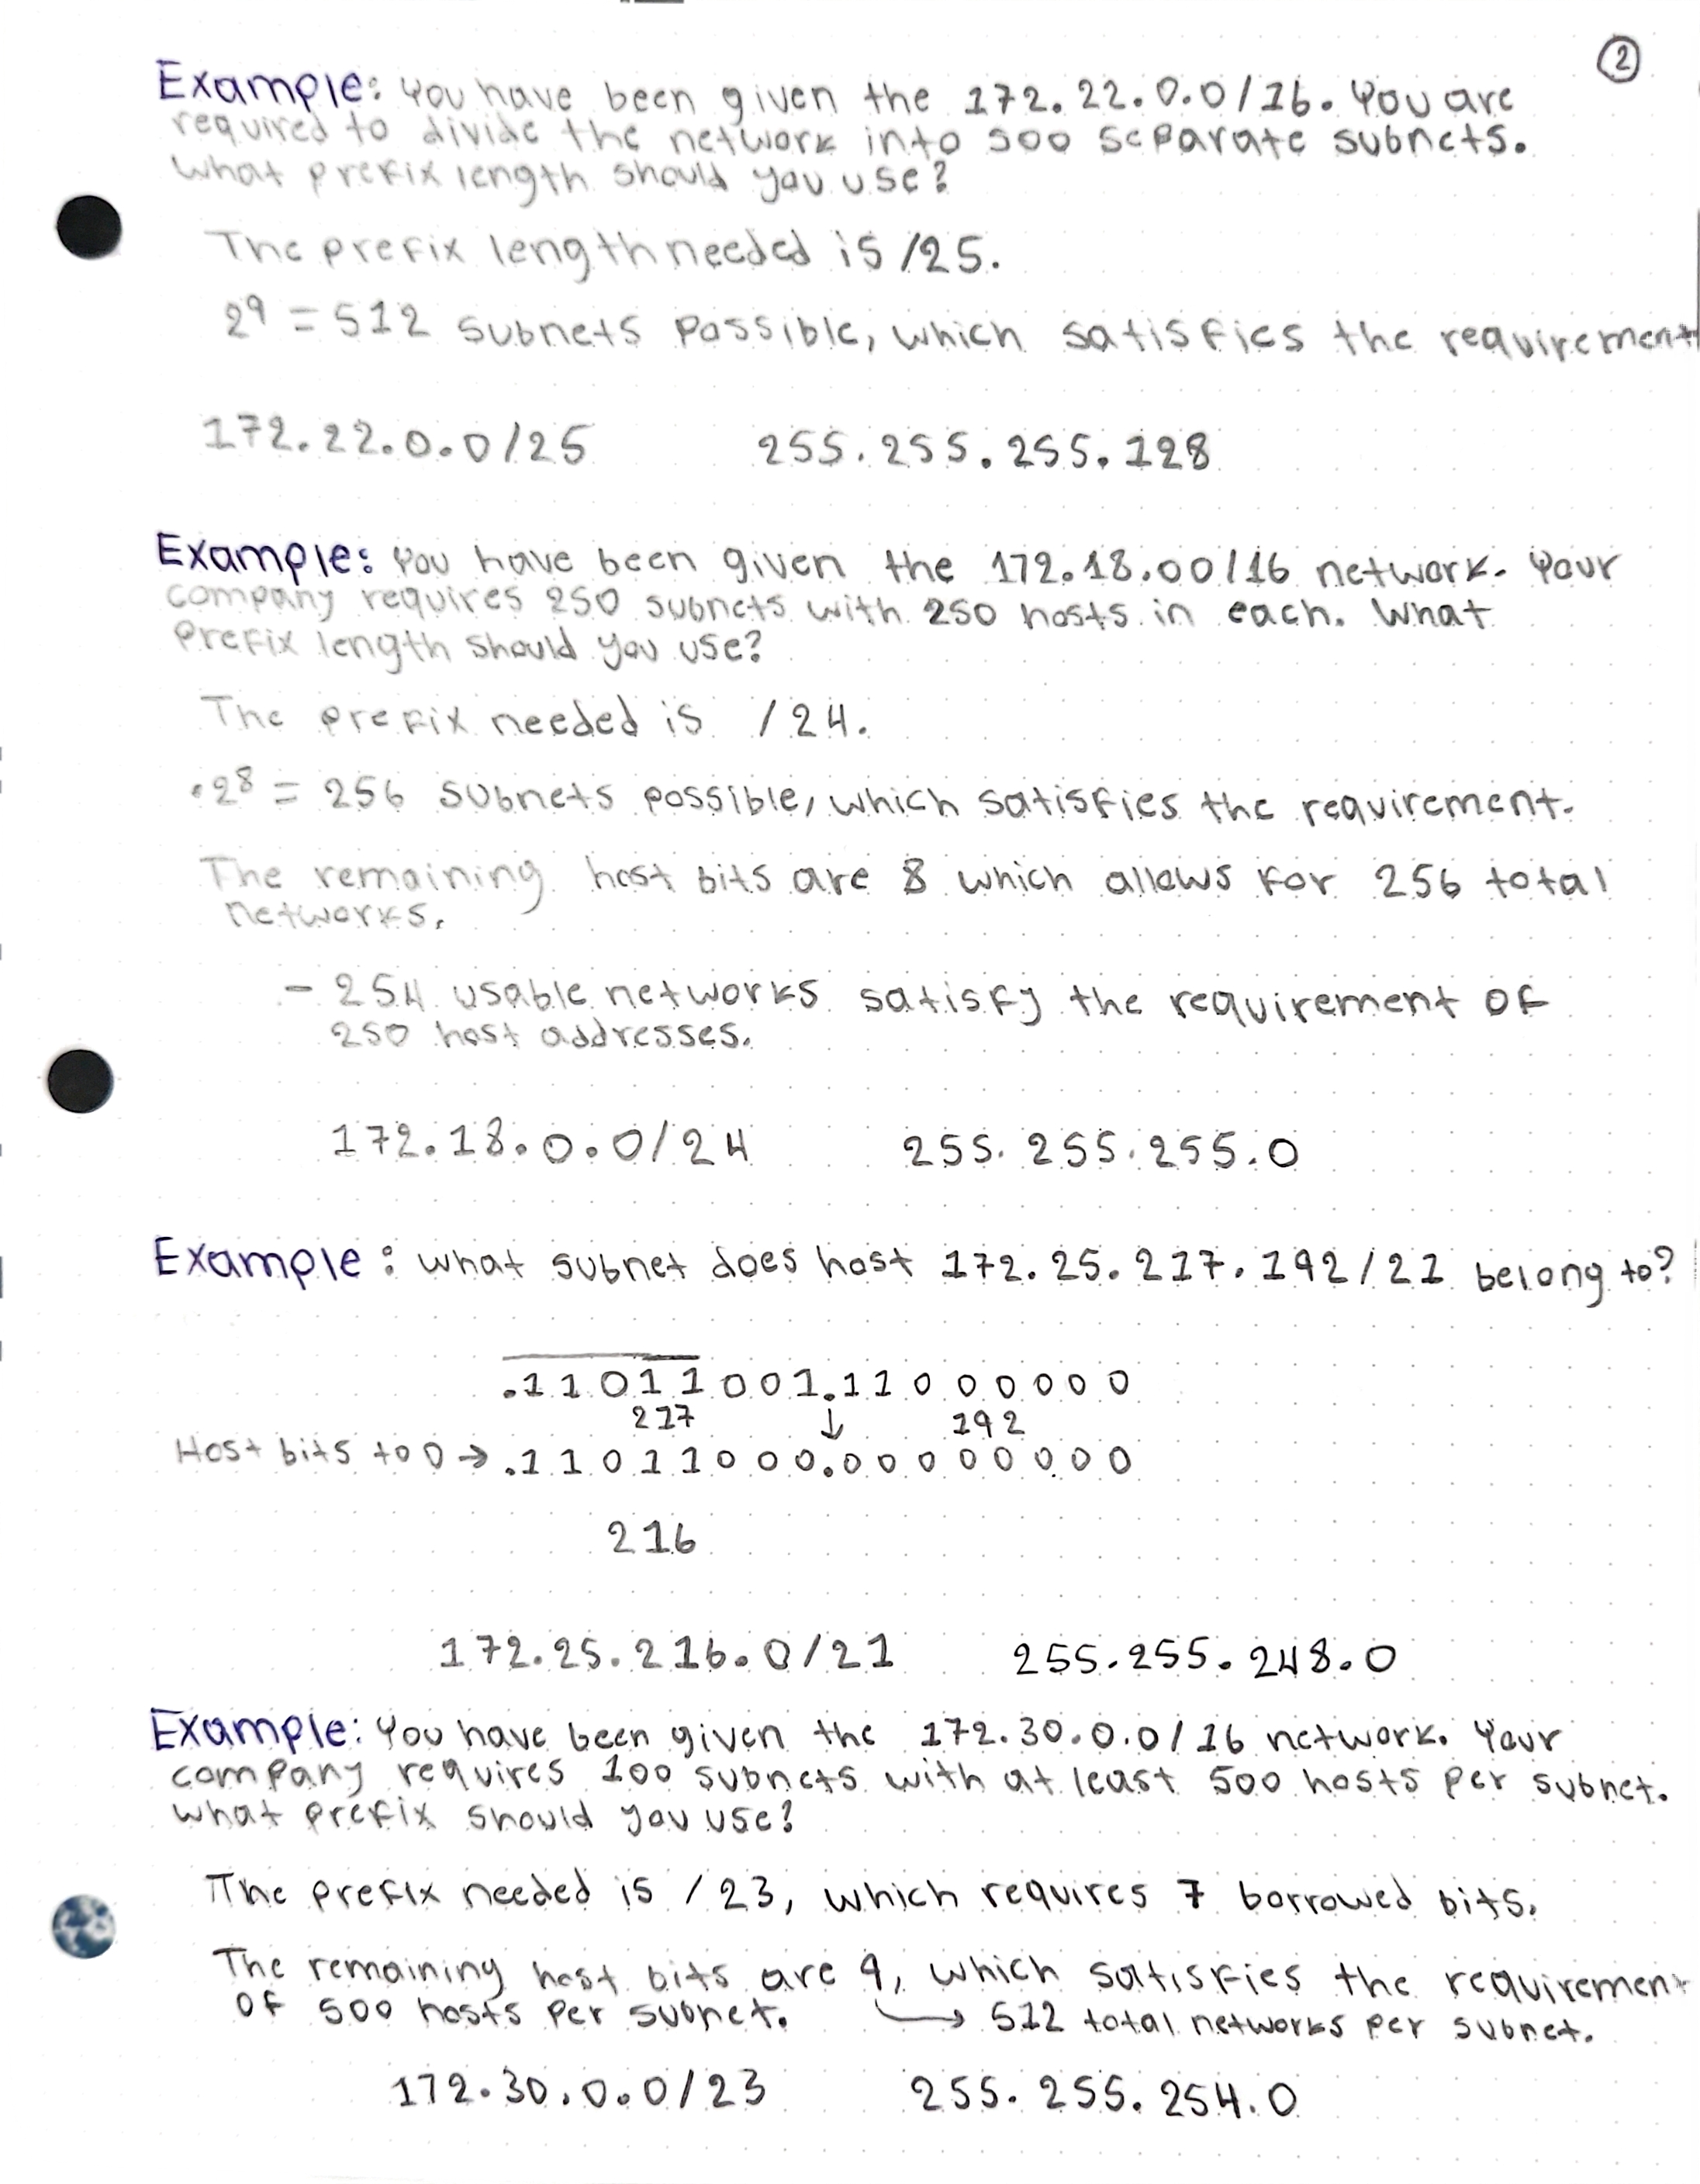 2
Example: You have been given the 172.22.0.0/16. You are
required to divide the network into 500 separate subnets.
What prefix length should you use?
The prefix length needed is /25.
2⁹ = 512 subnets possible, which satisfies the requirement
172.22.0.0/25 255.255.255.128
Example: You have been given the 172.18.00/16 network. Your
company requires 250 subnets with 250 hosts in each. What
prefix length should you use?
The prefix needed is /24.
·2⁸ = 256 subnets possible, which satisfies the requirement.
The remaining host bits are 8 which allows for 256 total
networks.
- 254 usable networks satisfy the requirement of
250 host addresses.
172.18.0.0/24 255.255.255.0
Example: What subnet does host 172.25.217.192/21 belong to?
.11011001.11000000
217 ↓ 192
Host bits to 0 → .11011000.00000000
216
172.25.216.0/21 255.255.248.0
Example: You have been given the 172.30.0.0/16 network. Your
company requires 100 subnets with at least 500 hosts per subnet.
What prefix should you use?
The prefix needed is /23, which requires 7 borrowed bits.
The remaining host bits are 9, which satisfies the requirement
of 500 hosts per subnet. → 512 total networks per subnet.
172.30.0.0/23 255.255.254.0